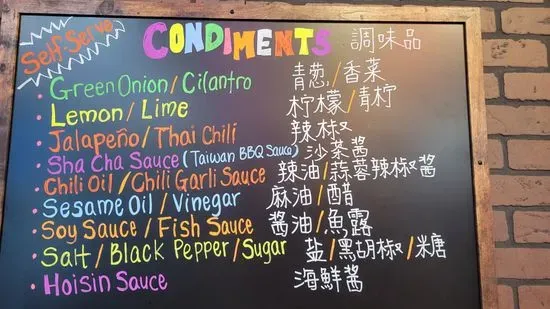 Self-Serve
CONDIMENTS 調味品
• Green Onion / Cilantro 青葱/香菜
• Lemon / Lime 柠檬/青柠
• Jalapeño / Thai Chili 辣椒
• Sha Cha Sauce (Taiwan BBQ Sauce) 沙茶酱
• Chili Oil / Chili Garli Sauce 辣油/蒜蓉辣椒酱
• Sesame Oil / Vinegar 麻油/醋
• Soy Sauce / Fish Sauce 酱油/魚露
• Salt / Black Pepper / Sugar 盐/黑胡椒/糖
• Hoisin Sauce 海鮮酱